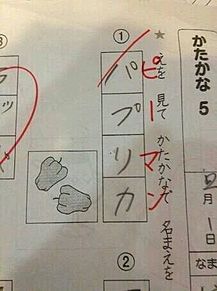 かたかな 5
月 1日
なま
★ えを 見て かたかなで 名まえを
①
パプリカ
ピーマン
②
③
ッ